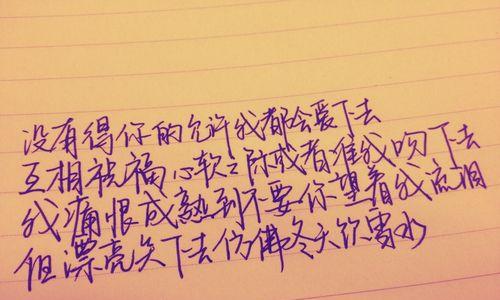 没有得你的允许我都会爱下去
互相祝福心软之际或者准我吻下去
我痛恨成熟到不要你望着我流泪
但漂亮笑下去仿佛冬天饮雪水